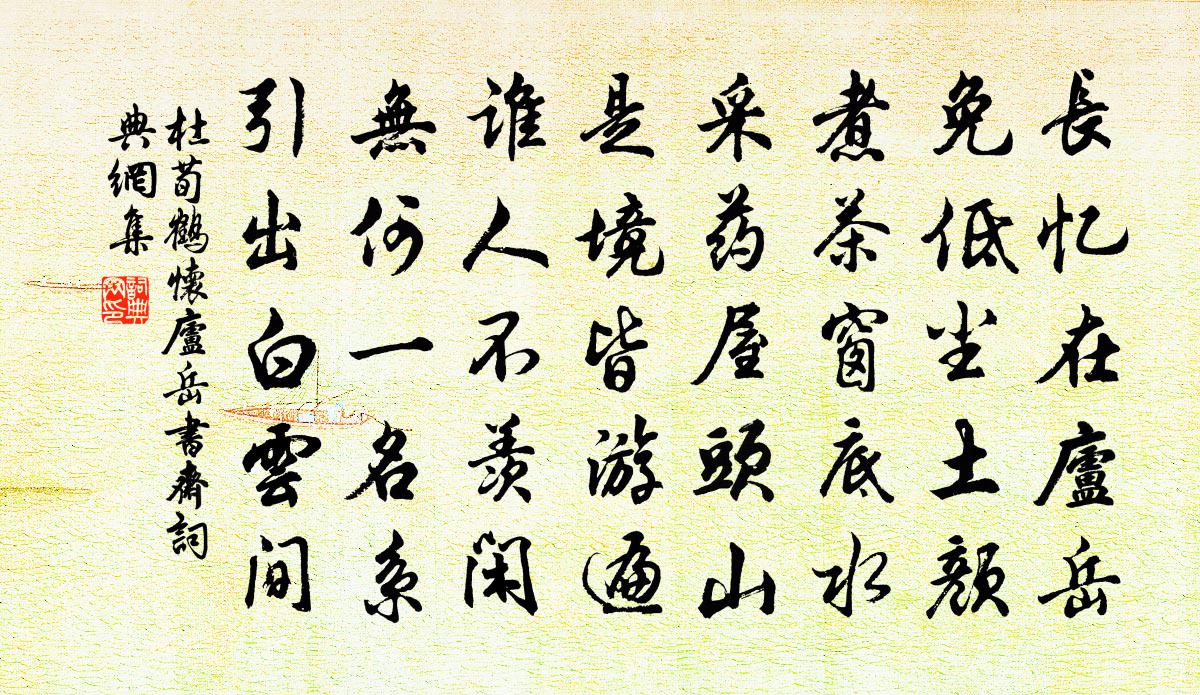 長忆在廬岳
免低尘土顔
煮茶窗底水
采药屋頭山
是境皆游遍
谁人不羡闲
無何一名系
引出白雲间
杜荀鶴懷廬岳書齋詞
典網集
詞典網印